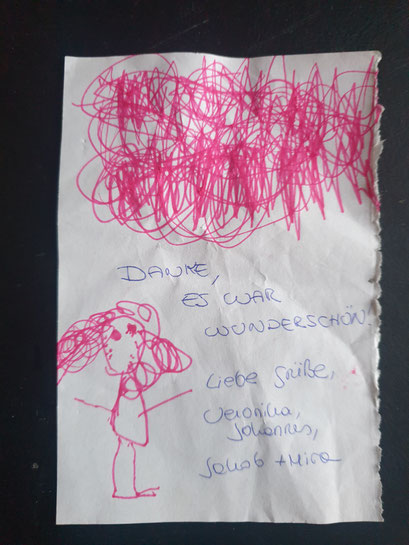 DANKE,
ES WAR
WUNDERSCHÖN!
Liebe Grüße,
Veronika,
Johannes,
Jakob + Mira